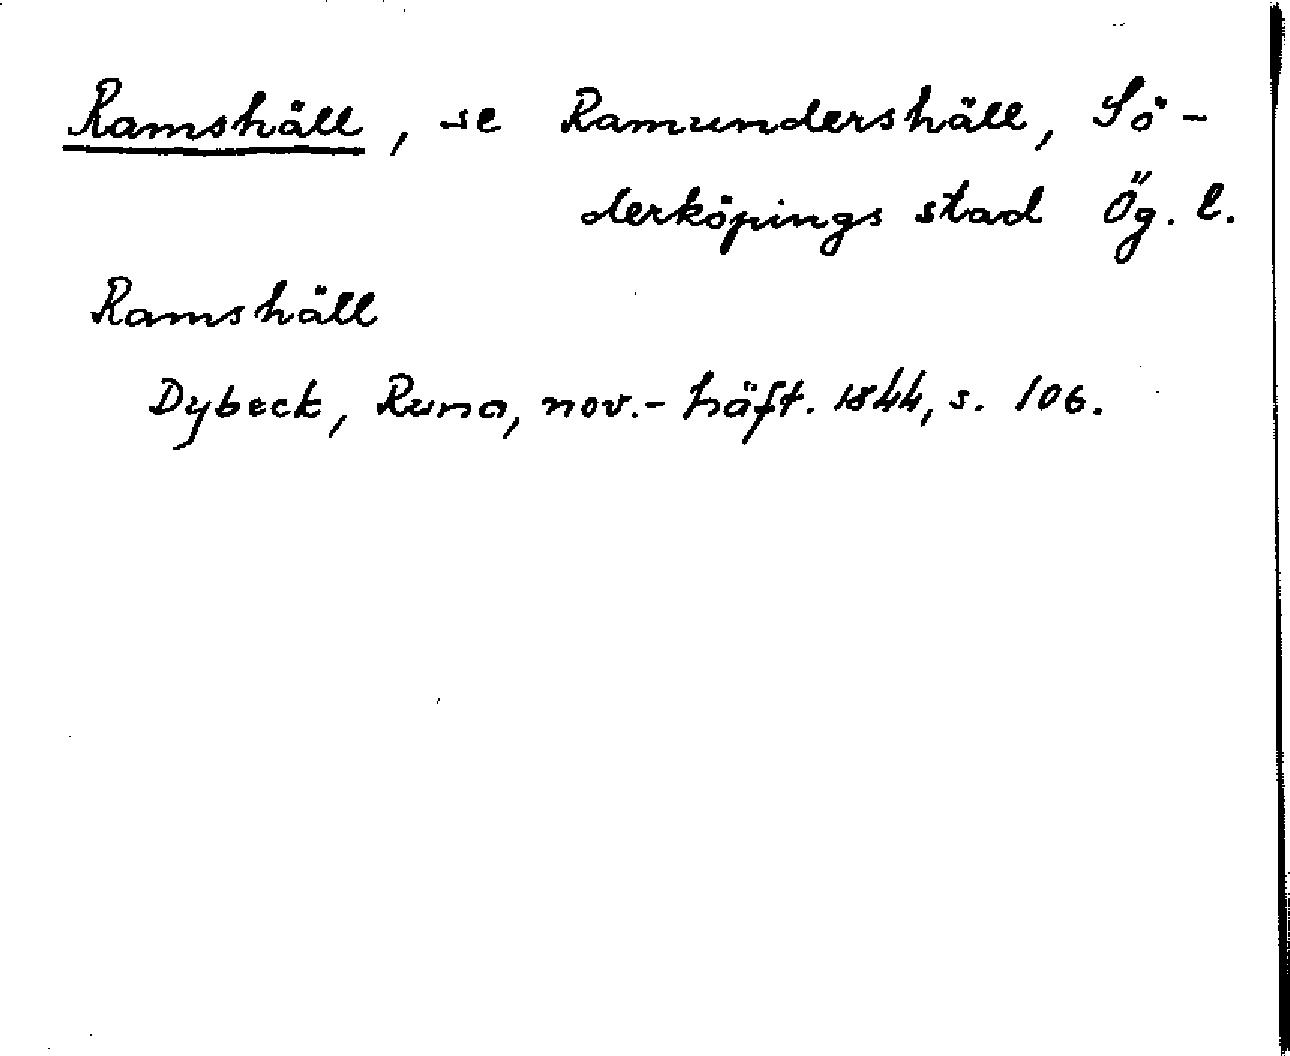 Ramshäll, se Ramundershäll, Sö-
derköpings stad Ög. l.
Ramshäll
Dybeck, Runa, nov.-häft. 1844, s. 106.